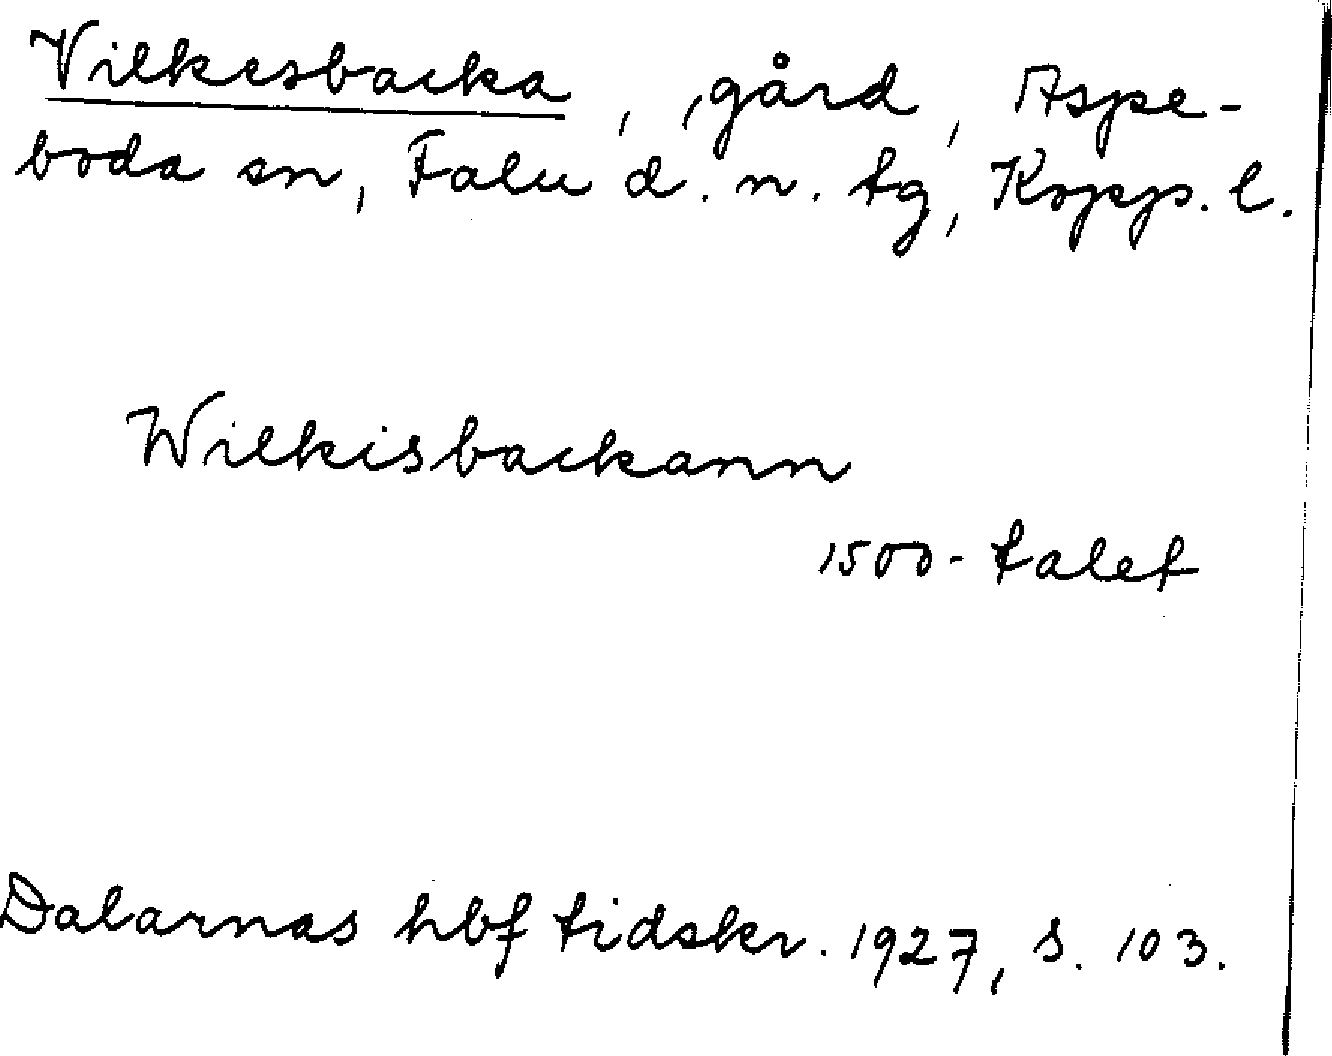 Vilkesbacka, gård, Aspe-
boda sn, Falu d. n. tg, Kopp. l.
Wilkisbackann
1500-talet
Dalarnas hbf tidskr. 1927, s. 103.